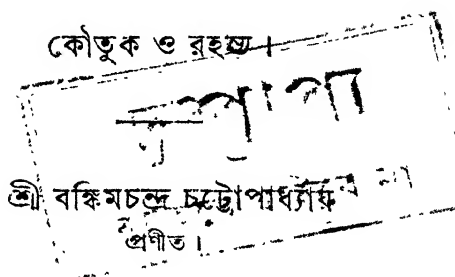 কৌতুক ও রহস্য।
শ্রী বঙ্কিমচন্দ্র চট্টোপাধ্যায়
প্রণীত।